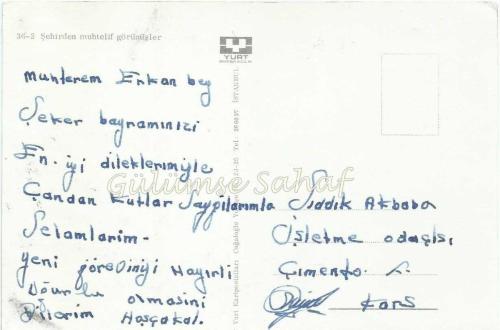 36-2 Şehirden muhtelif görünüşler
YURT
Muhterem Erkan bey
Şeker bayramınızı
En. iyi dileklerimyle
Çandan Kutlar Saygılarımla
Selamlarim-
yeni göreviniyi Hayırli
Oğurlu olmasini
Dilerim Hoşçakal.
Sıddık Akbaba
İşletme odaçısı
Çimento.
Kars
Gülümse Sahaf
Yurt Kartpostalları Cağaloğlu
İSTANBUL